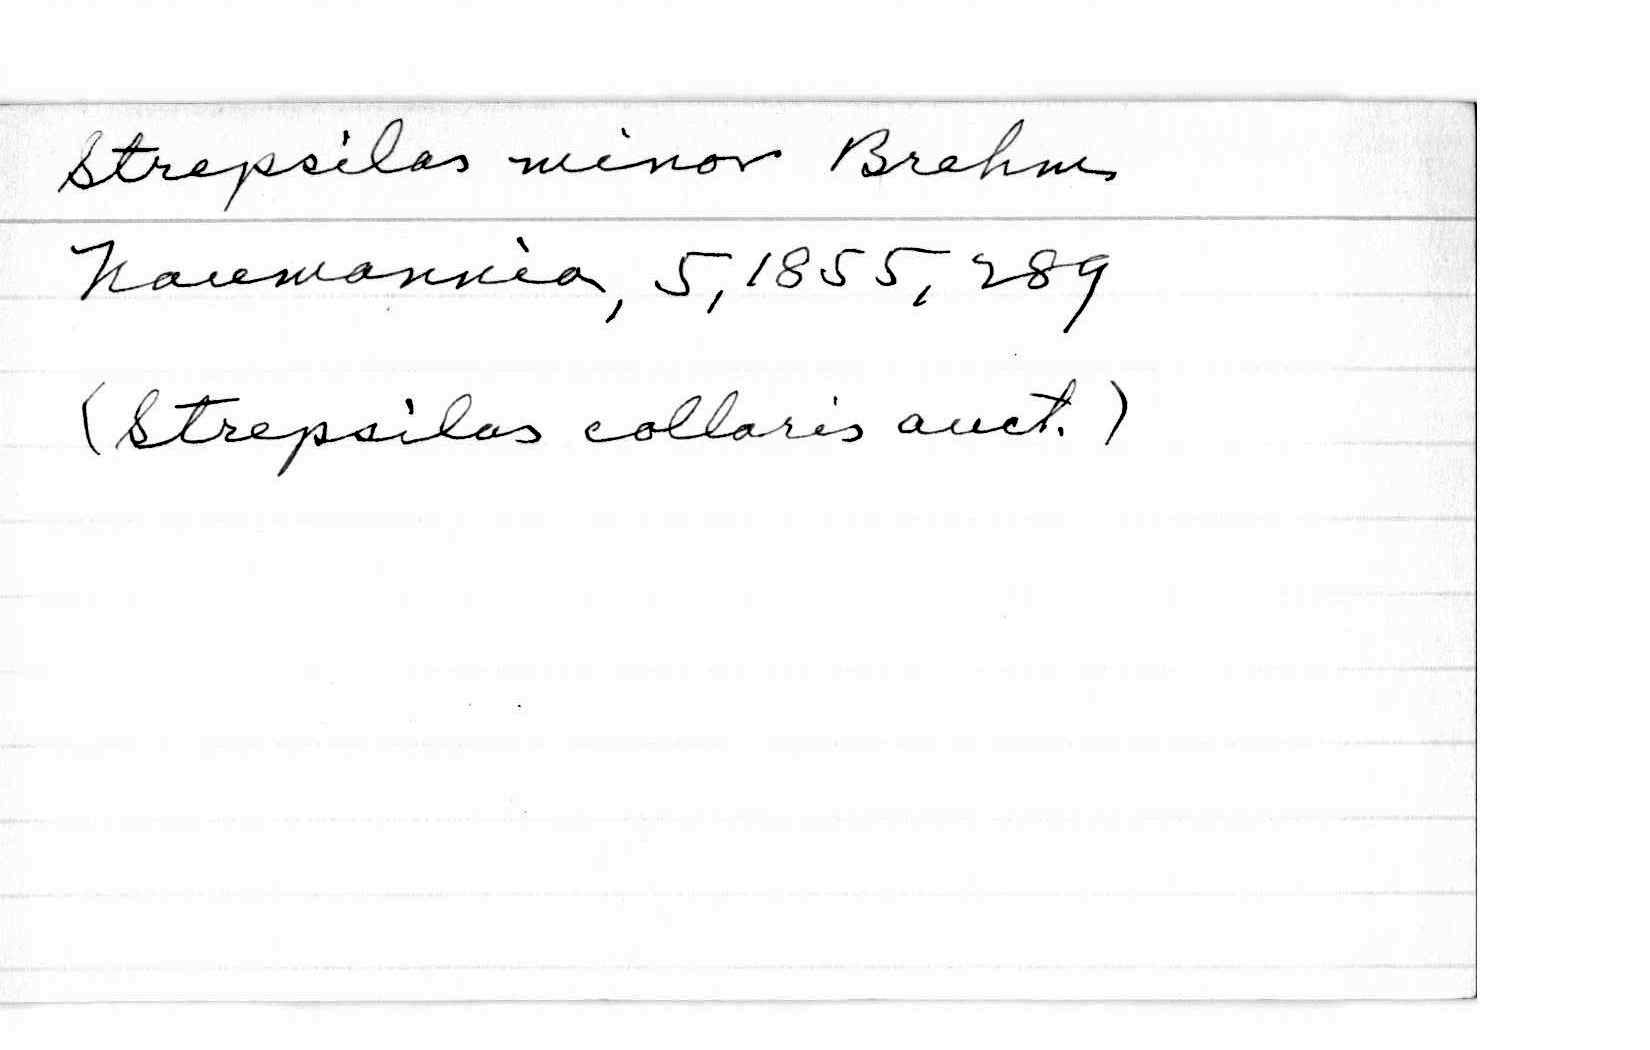 Strepsilas minor Brehm
Naumannia, 5, 1855, 289
(Strepsilas collaris auct.)